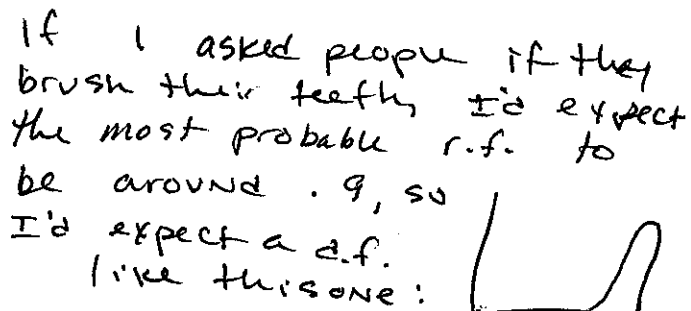 If I asked people if they
brush their teeth, I'd expect
the most probable r.f. to
be around .9, so
I'd expect a d.f.
like this one: